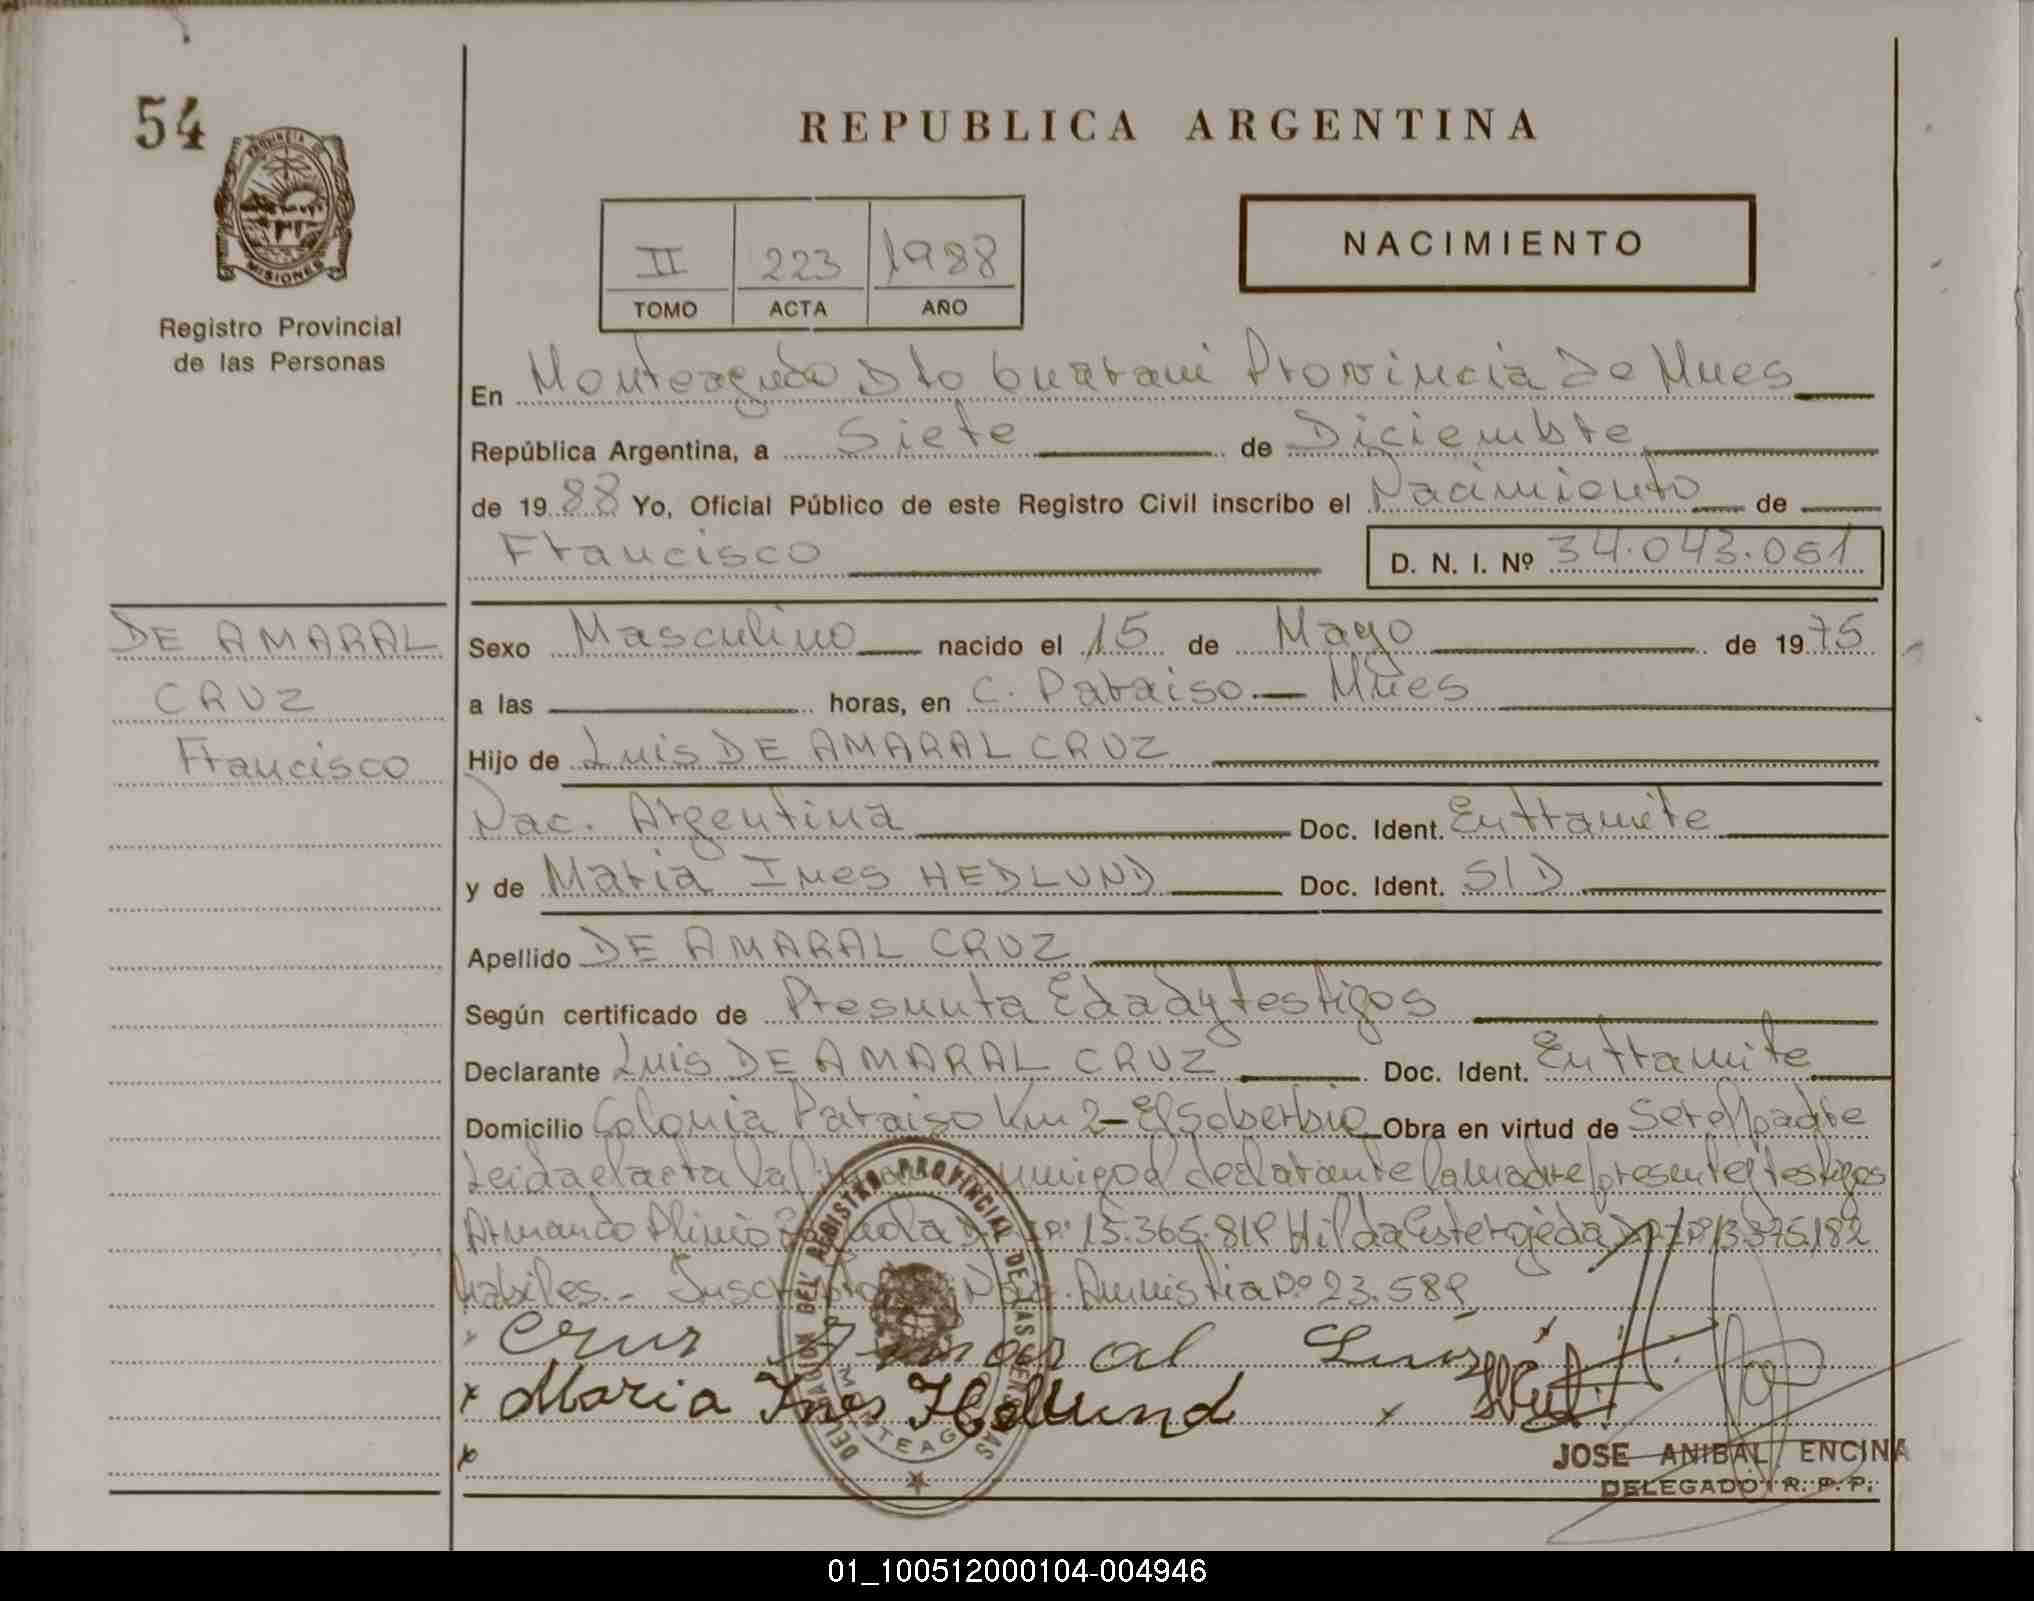 54
REPUBLICA ARGENTINA
PROVINCIA DE
MISIONES
Registro Provincial
de las Personas
II 223 1988
TOMO ACTA AÑO
NACIMIENTO
En Monteagudo Dto Guarani Provincia de Mnes
República Argentina, a Siete de Diciembre
de 1988 Yo, Oficial Público de este Registro Civil inscribo el Nacimiento de
Francisco D. N. I. Nº 34.043.061
DE AMARAL
CRUZ
Francisco
Sexo Masculino nacido el 15 de Mayo de 1975
a las horas, en C. Paraiso - Mnes
Hijo de Luis DE AMARAL CRUZ
Nac. Argentina Doc. Ident. En tramite
y de Maria Ines HEDLUND Doc. Ident. S/D
Apellido DE AMARAL CRUZ
Según certificado de Presunta Edad y testigos
Declarante Luis DE AMARAL CRUZ Doc. Ident. En tramite
Domicilio Colonia Paraiso Km 2 - El Soberbio Obra en virtud de Ser el padre
Leida el acta la conmigo el declarante la madre presente y testigos
Armando 15.365.819 Hilda Ester Ojeda 13.375.182
habiles.- Inscripcion Amnistia Nº 23.589
x Cruz Amaral Luis
x Maria Ines Hedlund x
x
DELEGACION DEL REGISTRO PROVINCIAL DE LAS PERSONAS
MONTEAGUDO
JOSE ANIBAL ENCINA
DELEGADO R. P. P.
01_100512000104-004946